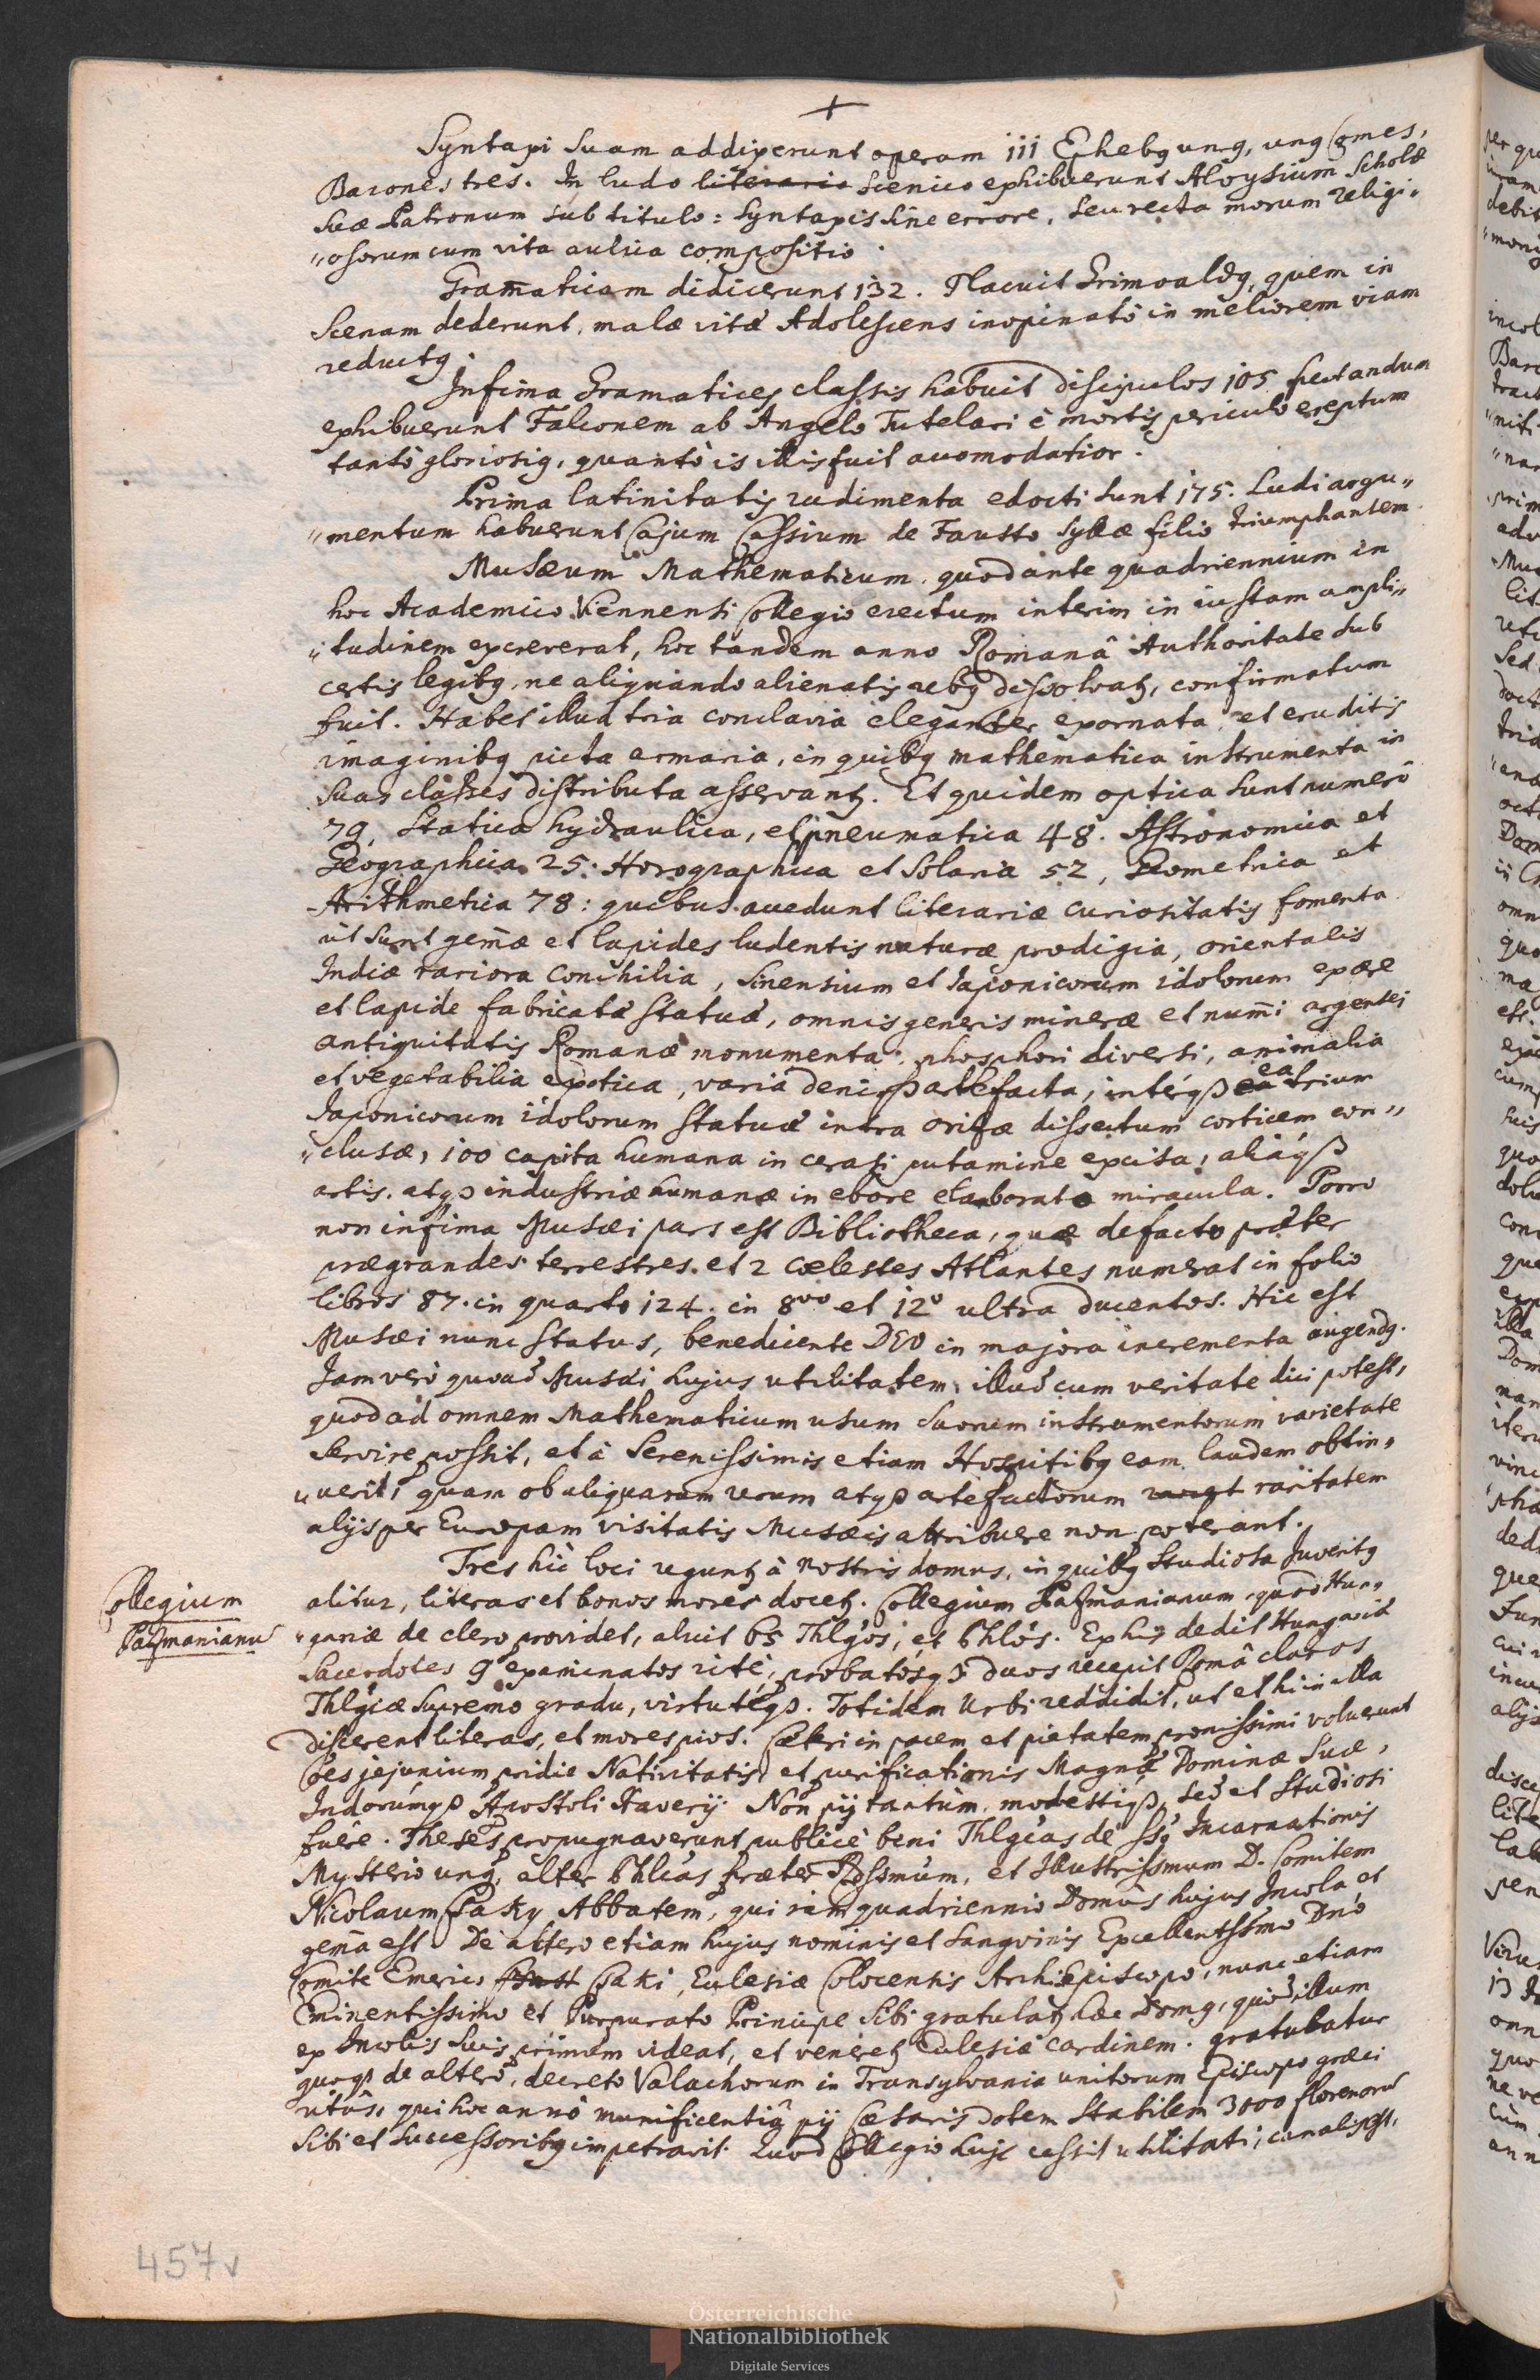 +
Syntaxi suam addixerunt operam 111 Ephebg ung, ung Comes,
Barones tres. In ludo literario scenico exhibuerunt Aloysium Scholæ
suæ Patronum sub titulo: Syntaxis sine errore, seu recta morum religi„
„osorum cum vita aulica compositio.
Gram̄aticam didicerunt 132. Placuit Grimoaldg, quem in
Scenam dederunt, malæ vitæ Adolescens inopinatò in meliorem viam
reductg.
Infima Gramatices classis habuit discipulos 105 spectandum
exhibuerunt Falconem ab Angelo Tutelari è mortis periculo ereptum
tantò gloriosig, quantò is illis fuit accomodatior.
Prima latinitatis rudimenta edocti sunt 175. Ludi argu„
„mentum habuerunt Cajum Cassium de Fausto Syllæ filio triumphantem
Musæum Mathematicum, quod ante quadriennium in
hoc Academico Viennensi Collegio erectum interim in iustam ampli„
„tudinem excreverat, hoc tandem anno Romanâ Authoritate sub
certis legibg, ne aliquando alienatis rebg dissolvatꝫ, confirmatum
fuit. Habet illud tria conclavia eleganter exornata, et eruditis
imaginibg picta armaria, in quibg mathematica instrumenta in
suas classes distributa asservantꝫ. Et quidem optica sunt numerô
79, Statica hydraulica, et pneumatica 48. Astronomica et
Geographica 25. Horographica et Solaria 52, Geometrica et
Arithmetica 78: quibus accedunt literariæ curiositatis fomenta
ut sunt gem̄æ et lapides ludentis naturæ prodigia, orientalis
Indiæ rariora conchilia, Sinensium et Iaponicorum idolorum ex ære
et lapide fabricatæ statuæ, omnis generis mineræ et num̄i argentei
antiquitatis Romanæ monumenta, phosphori diversi, animalia
et vegetabilia exotica, varia deniqꝫ artefacta, intérqꝫ ea ea trium
Iaponicorum idolorum statuæ intra orizæ dissectum corticem con„
„clusæ, 100 capita humana in cerasi putamine excisa, aliáqꝫ
artis, atqꝫ industriæ humanæ in ebore elaborata miracula. Porro
non infima Musæi pars est Bibliotheca, quæ de facto præter
prægrandes terrestres et 2 cælestes Atlantes numerat in folio
libros 87. in quarto 124. in 8vo et 12o ultra ducentos. Hic est
Musæi nunc status, benedicente DEO in majora incrementa augendg.
Jam verò quoad Musæi hujus utilitatem, illud cum veritate dici potest,
quod ad omnem Mathematicum usum suorum instrumentorum varietate
servire possit, et à Serenissimis etiam Hospitibg eam laudem obtin„
„uerit, quam ob aliquarum rerum atqꝫ artefactorum raritatem
alijs per Europam visitatis Musæis attribuere non poterant.
Tres hic loci reguntꝫ à nostris domus, in quibg studiosa Juventg
alitur, literas et bonos mores docetꝫ. Collegium Pazmanianum, quod Hun„
Collegium
Pazmanianū
„gariæ de clero providet, aluit 65 Thlg̃os, et Phlõs. Ex his dedit Hungariæ
Sacerdotes 9 examinatos ritè, probatósqꝫ duos recepit Româ claros
Thlgiæ supremo gradu, virtutéqꝫ. Totidem Urbi reddidit, ut et hi in illa
discerent literas, et mores pios. Cæteri in pacem et pietatem pronissimi voluerunt
ões jejunium pridie Nativitatis, et purificationis Magnæ Dominæ Suæ,
Indorúmqꝫ Apostoli Xaverij. Non pij tantùm, modestiqꝫ, sed et studiosi
fuêre. Theses propugnaverunt publicè bini Thlgicas de SS. Incarnationis
Mysterio ung, alter Phlicas præter Rdssmum, et Illustrissmum D. Comitem
Nicolaum Csaky Abbatem, qui iam quadriennio Domûs hujus Incola et
gem̄a est. De altero etiam hujus nominis et sangvinis Excellentssmo Dnõ
Comite Emerico Csaki, Ecclesiæ Colocensis ArchiEpiscopo, nunc etiam
Eminentissimo et Purpurato Principe sibi gratulatꝫ hæc Domg, quòd illum
ex Incolis suis primum videat, et veneretꝫ Ecclesiæ cardinem. gratulatur
quoqꝫ de altero, decreto Valachorum in Transylvania unitorum Episcopo græci
ritûs, qui hoc annô munificentiâ pij Cæsaris dotem stabilem 3000 florenorū
sibi et successoribg impetravit. Quod Collegio hujc cessit utilitati,
457v
Österreichische
Nationalbibliothek
Digitale Services